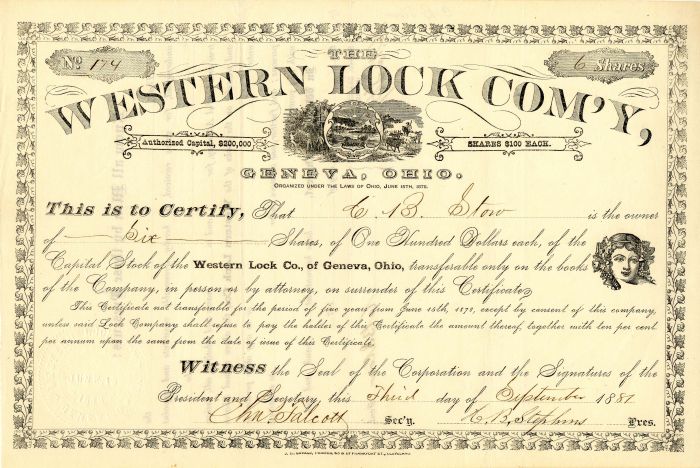 No 174
6 Shares
THE
WESTERN LOCK COM'Y,
Authorized Capital, $200,000
SHARES $100 EACH.
GENEVA, OHIO.
ORGANIZED UNDER THE LAWS OF OHIO, JUNE 15TH, 1878.
This is to Certify, That C. B. Stow is the owner
of Six Shares, of One Hundred Dollars each, of the
Capital Stock of the Western Lock Co., of Geneva, Ohio, transferable only on the books
of the Company, in person or by attorney, on surrender of this Certificate
This Certificate not transferable for the period of five years from June 15th, 1878, except by consent of this company,
unless said Lock Company shall refuse to pay the holder of this Certificate the amount thereof, together with ten per cent.
per annum upon the same from the date of issue of this Certificate.
Witness the Seal of the Corporation and the Signatures of the
President and Secretary, this Third day of September 1881
Chas Talcott Sec'y. C. B. Stephens Pres.